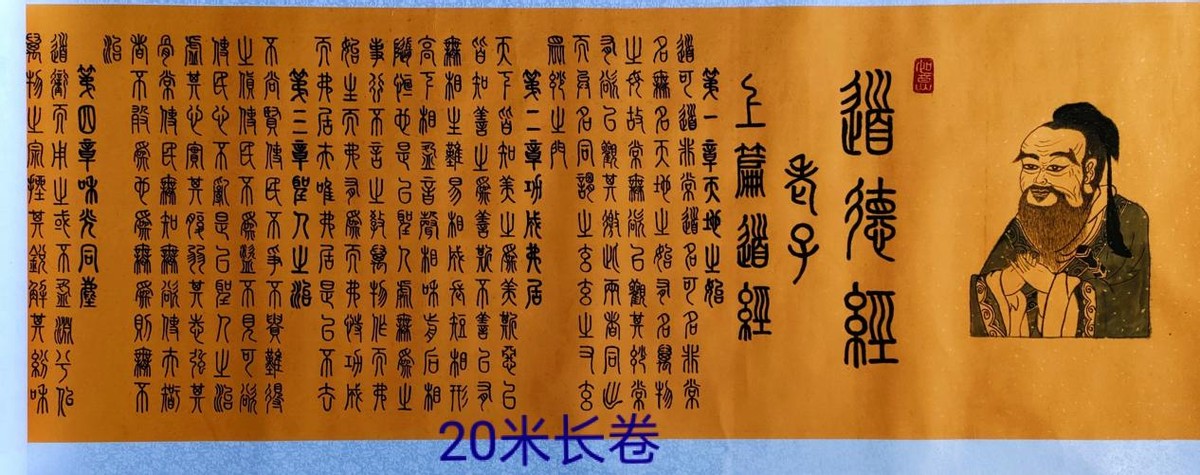 道德經
老子
上篇道經
第一章天地之始
道可道非常道名可名非常
名無名天地之始有名萬物
之母故常無欲以觀其妙常
有欲以觀其徼此兩者同出
而異名同謂之玄玄之又玄
眾妙之門
第二章功成弗居
天下皆知美之為美斯惡已
皆知善之為善斯不善已有
無相生難易相成長短相形
高下相盈音聲相和前后相
隨恒也是以聖人處無為之
事行不言之教萬物作而弗
始生而弗有為而弗恃功成
而弗居夫唯弗居是以不去
第三章聖人之治
不尚賢使民不爭不貴難得
之貨使民不為盜不見可欲
使民心不亂是以聖人之治
虛其心實其腹弱其志強其
骨常使民無知無欲使夫智
者不敢為也為無為則無不
治
第四章和光同塵
道衝而用之或不盈淵兮似
萬物之宗挫其銳解其紛和
20米长卷